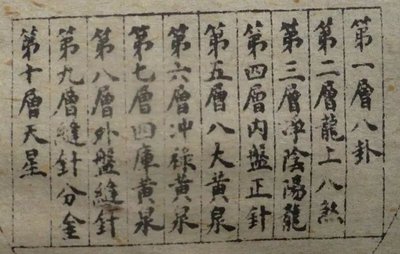 第一層八卦
第二層龍上八煞
第三層淨陰陽龍
第四層內盤正針
第五層八大黃泉
第六層冲祿黃泉
第七層四庫黃泉
第八層外盤縫針
第九層縫針分金
第十層天星